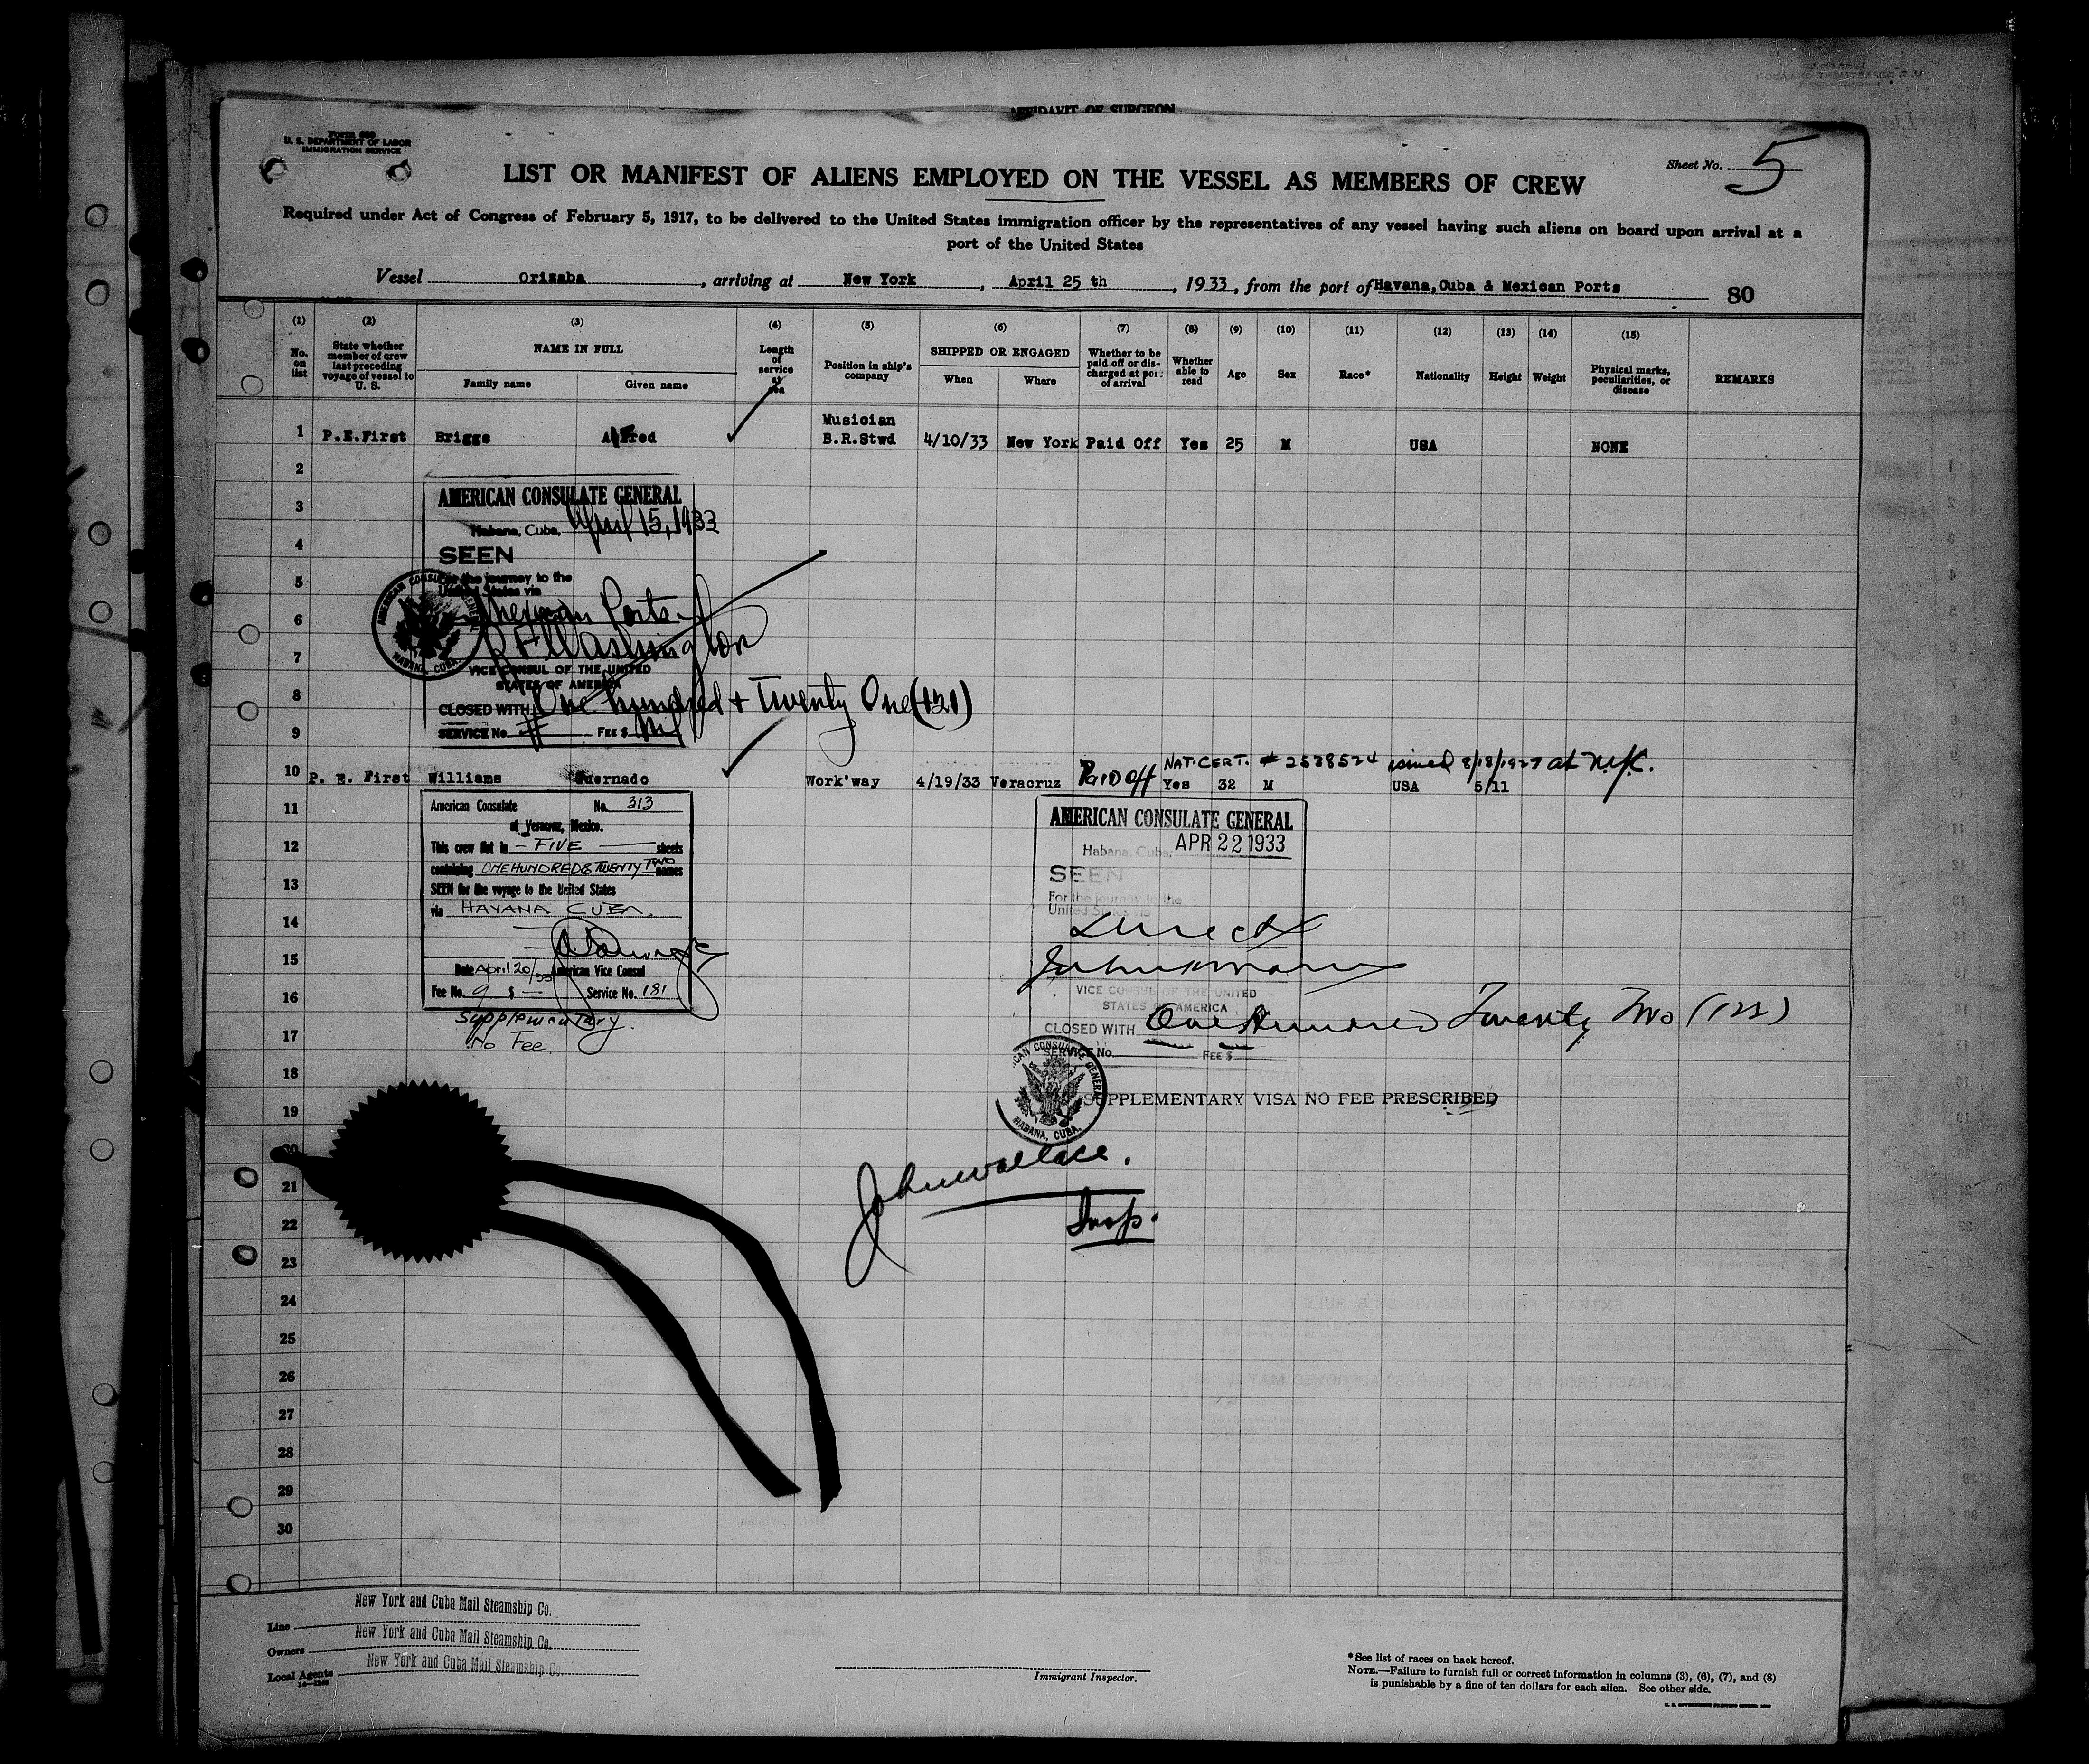 AFFIDAVIT OF SURGEON
Form 689
U. S. DEPARTMENT OF LABOR
IMMIGRATION SERVICE
Sheet No. 5
LIST OR MANIFEST OF ALIENS EMPLOYED ON THE VESSEL AS MEMBERS OF CREW
Required under Act of Congress of February 5, 1917, to be delivered to the United States immigration officer by the representatives of any vessel having such aliens on board upon arrival at a
port of the United States
Vessel Orizaba, arriving at New York, April 25 th, 1933, from the port of Havana,Cuba & Mexican Ports 80
(1) (2) (3) (4) (5) (6) (7) (8) (9) (10) (11) (12) (13) (14) (15)
No. on list
State whether member of crew last preceding voyage of vessel to U. S.
NAME IN FULL
Family name Given name
Length of service at sea
Position in ship's company
SHIPPED OR ENGAGED
When Where
Whether to be paid off or discharged at port of arrival
Whether able to read
Age Sex Race* Nationality Height Weight
Physical marks, peculiarities, or disease
REMARKS
1 P.E.First Briggs Alfred Musician B.R.Stwd 4/10/33 New York Paid Off Yes 25 M USA NONE
2
3
4
5
6
7
8
9
AMERICAN CONSULATE GENERAL
Habana, Cuba, April 15, 1933
SEEN
For the journey to the
United States via
Mexican Ports
VICE CONSUL OF THE UNITED
STATES OF AMERICA
CLOSED WITH One hundred + Twenty One (121)
SERVICE No. FEE $
AMERICAN CONSULATE GENERAL
HABANA, CUBA.
NAT. CERT. # 2538524 issued 8/18/1927 at N.Y.C.
10 P. E. First Williams Guernado Work'way 4/19/33 Veracruz Paid Off Yes 32 M USA 5/11
11
12
13
14
15
16
17
18
19
20
21
22
23
24
25
26
27
28
29
30
American Consulate No. 313
at Veracruz, Mexico.
This crew list in - FIVE - sheets
containing ONE HUNDRED & TWENTY TWO names
SEEN for the voyage to the United States
via HAVANA CUBA.
Date April 20/33 American Vice Consul
Fee No. 9 $ — Service No. 181
Supplementary.
No Fee.
AMERICAN CONSULATE GENERAL
Habana, Cuba, APR 22 1933
SEEN
For the journey to the
United States via
Direct
VICE CONSUL OF THE UNITED
STATES OF AMERICA
CLOSED WITH One Hundred Twenty Two (122)
SERVICE No. FEE $
AMERICAN CONSULATE GENERAL
HABANA, CUBA.
SUPPLEMENTARY VISA NO FEE PRESCRIBED
John Wallace.
Insp.
Line New York and Cuba Mail Steamship Co.
Owners New York and Cuba Mail Steamship Co.
Local Agents New York and Cuba Mail Steamship Co.
Immigrant Inspector.
*See list of races on back hereof.
NOTE.—Failure to furnish full or correct information in columns (3), (6), (7), and (8)
is punishable by a fine of ten dollars for each alien. See other side.